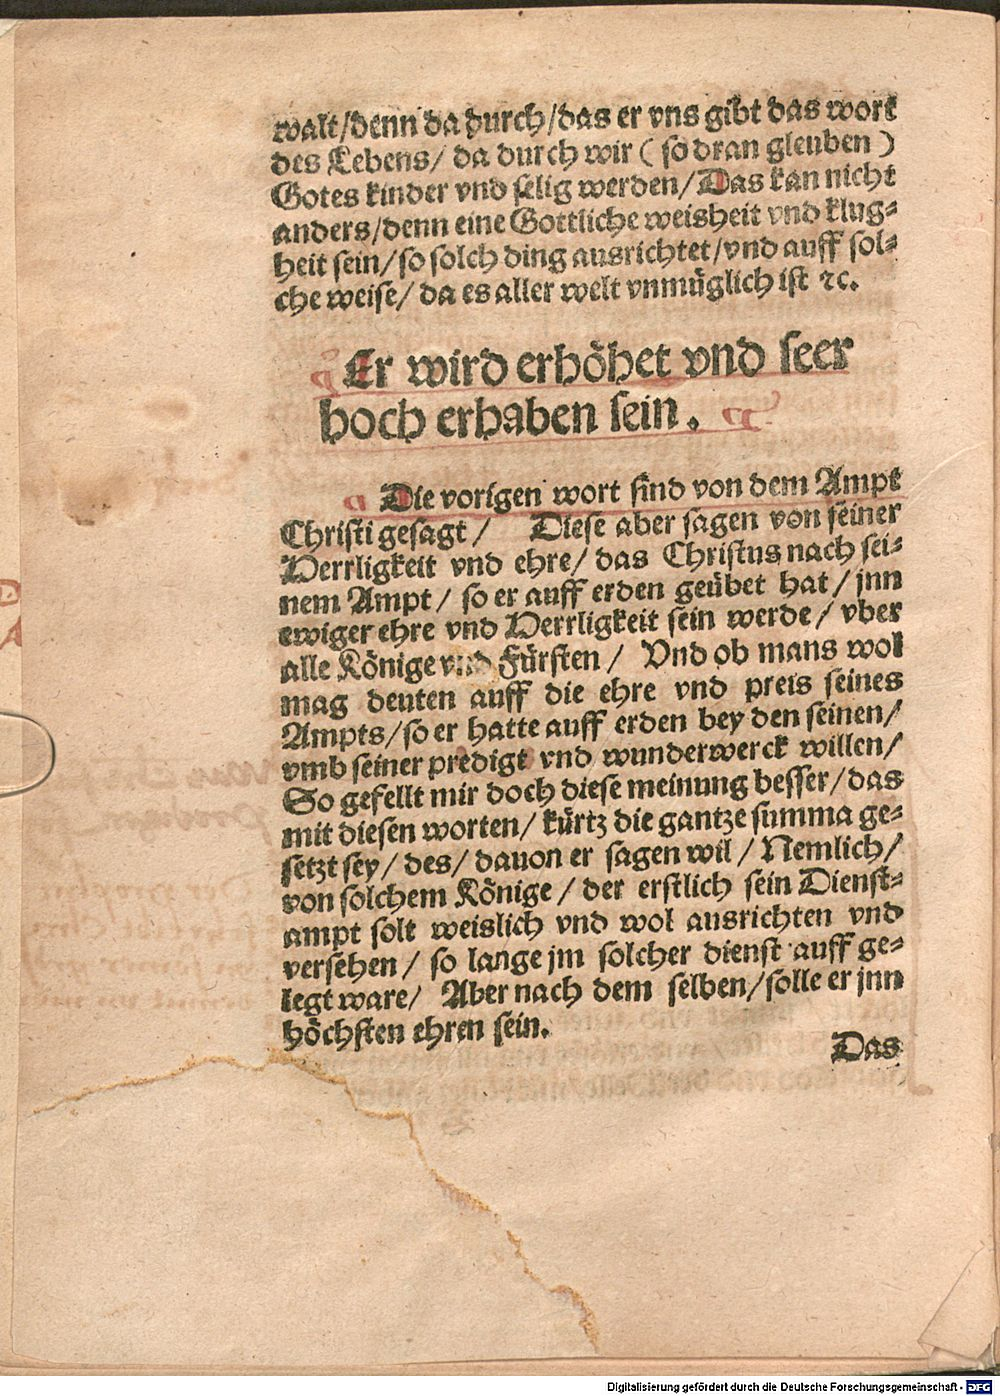 walt/denn da durch/das er vns gibt das wort
des Lebens/ da durch wir ( so dran gleuben )
Gotes kinder vnd selig werden/Das kan nicht
anders/denn eine Gottliche weisheit vnd klug-
heit sein/so solch ding ausrichtet/vnd auff sol-
che weise/ da es aller welt vnmüglich ist ꝛc.
Er wird erhöhet vnd seer
hoch erhaben sein.
Die vorigen wort sind von dem Ampt
Christi gesagt/ Diese aber sagen von seiner
Herrligkeit vnd ehre/ das Christus nach sei-
nem Ampt/ so er auff erden geübet hat/ jnn
ewiger ehre vnd Herrligkeit sein werde/ vber
alle Könige vnd Fürsten/ Vnd ob mans wol
mag deuten auff die ehre vnd preis seines
Ampts/so er hatte auff erden bey den seinen/
vmb seiner predigt vnd wunderwerck willen/
So gefellt mir doch diese meinung besser/das
mit diesen worten/ kürtz die gantze summa ge-
setzt sey/ des/ dauon er sagen wil/ Nemlich/
von solchem Könige/ der erstlich sein Dienst-
ampt solt weislich vnd wol ausrichten vnd
versehen/ so lange jm solcher dienst auff ge-
legt ware/ Aber nach dem selben/solle er jnn
höchsten ehren sein.
Das
Digitalisierung gefördert durch die Deutsche Forschungsgemeinschaft - DFG